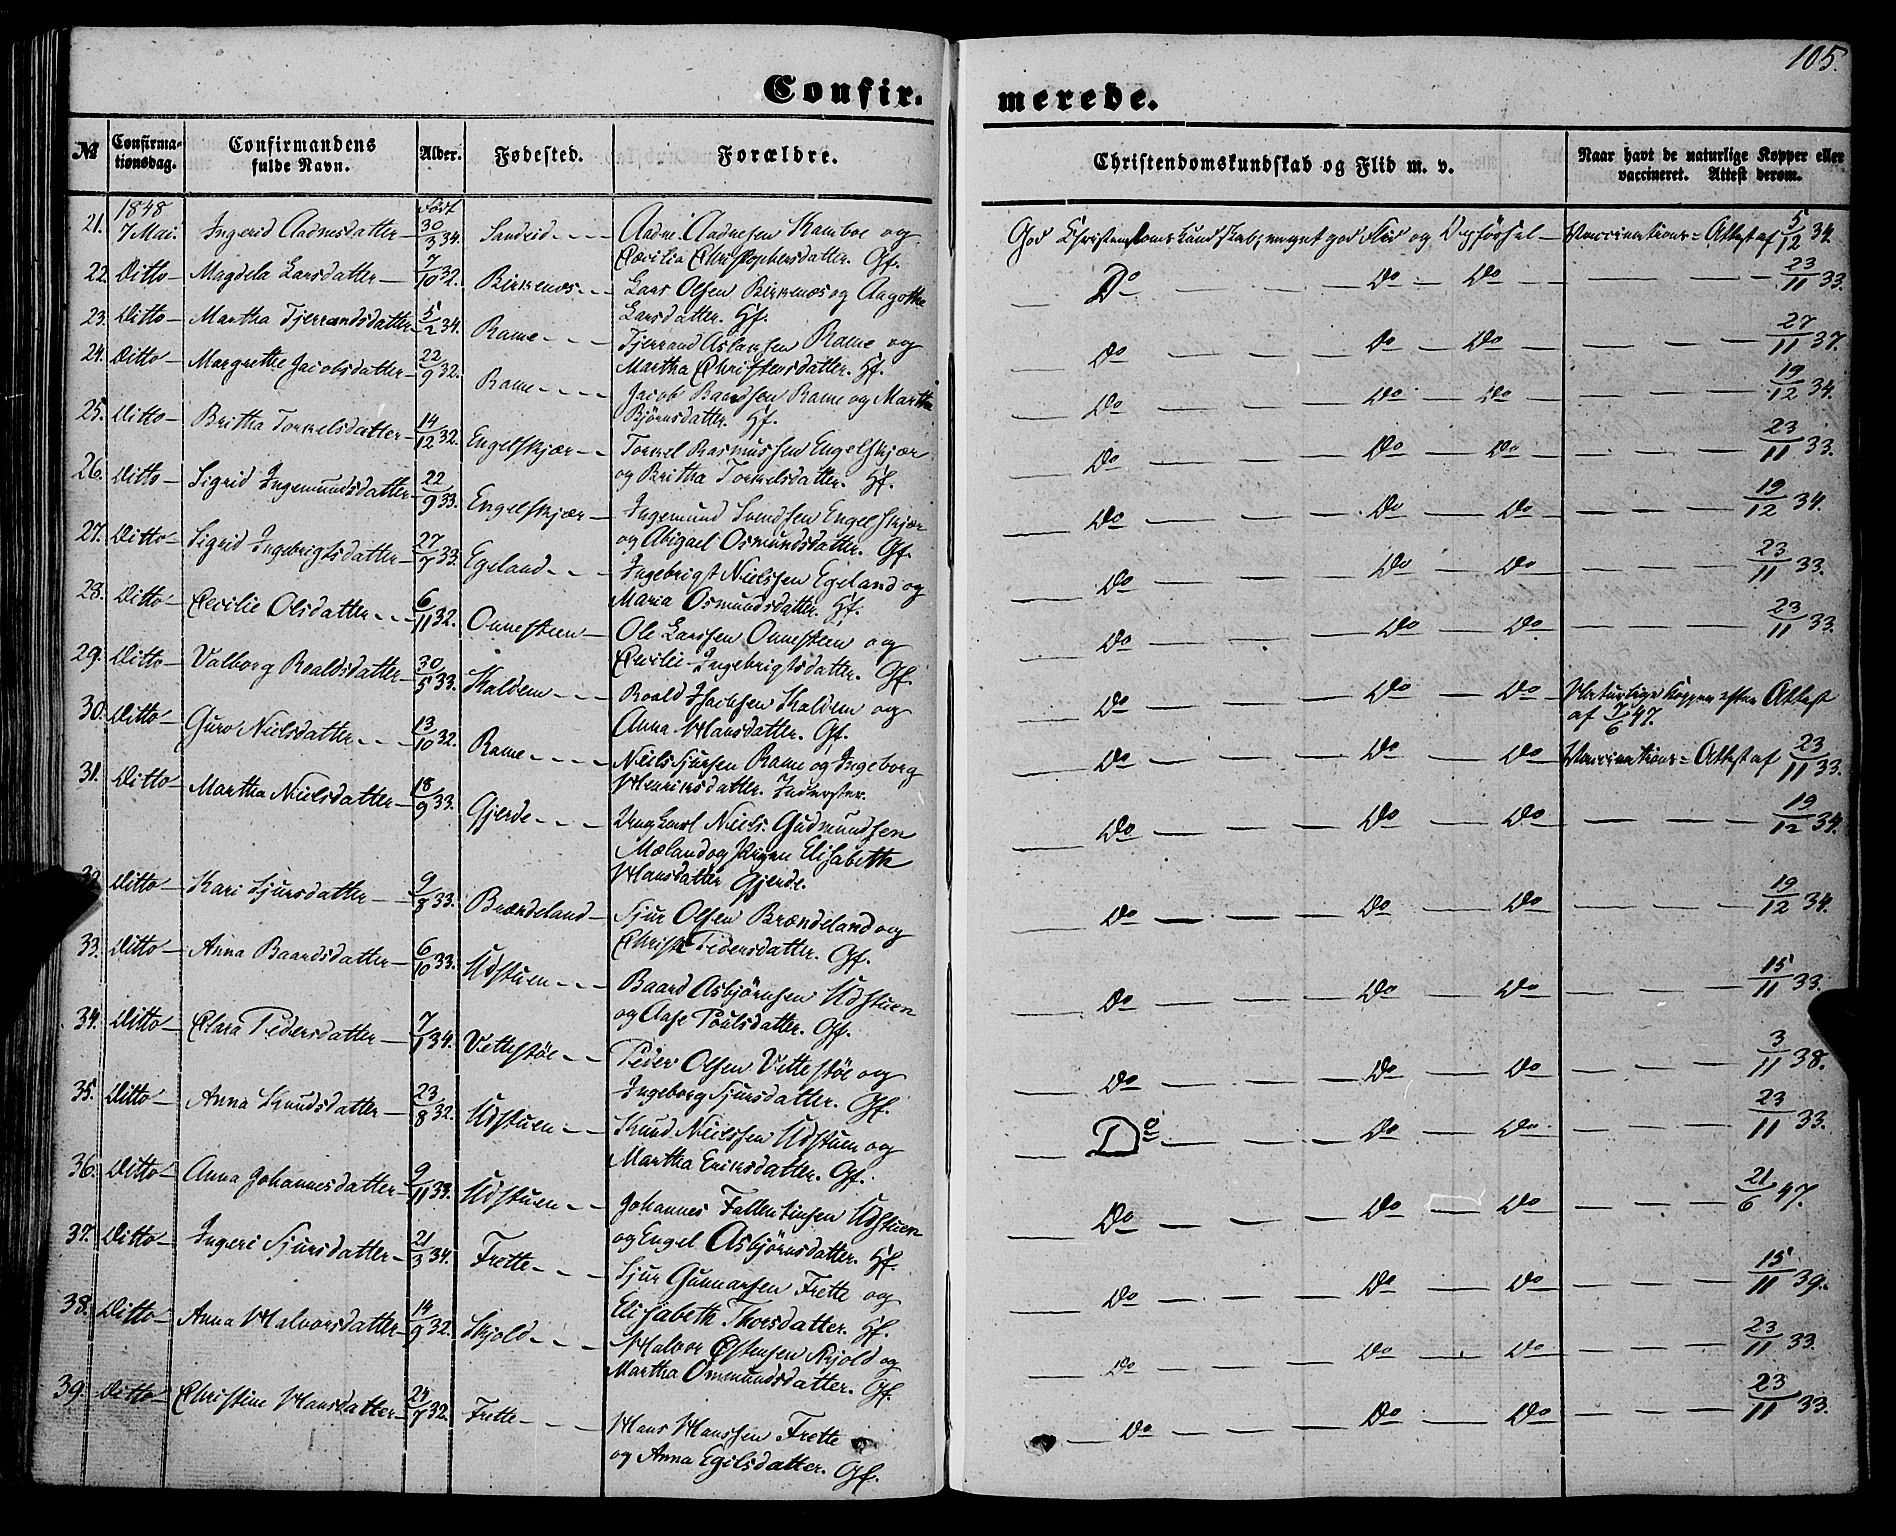 105.
Confir. merede.
№ Confirma-tionsdag. Confirmandens fulde Navn. Alder. Fødested. Forældre. Christendomskundskab og Flid m. v. Naar havt de naturlige Kopper eller vaccineret. Attest derom.
1848 født
21. 7 Mai. Ingerid Aadnesdatter 30/3 34. Sandeid Aadne Aadnesen Kamboe og God Christendomskundskab, meget god Flid og Opførsel Vaccinations-Attest af 5/12 34.
Cecilia Christophersdatter. Gf.
22. Ditto Magdela Larsdatter 7/10 32. Birkenæs Lars Olsen Birkenæs og Aagotha Do Do Do 23/11 33.
Larsdatter. Hf.
23. Ditto Martha Tjerrandsdatter 5/2 34. Rame Tjerrand Aslaksen Rame og Do Do Do 27/11 37.
Martha Christensdatter. Hf.
24. Ditto Margrethe Jacobsdatter 22/9 32. Rame Jacob Baardsen Rame og Martha Do Do Do 19/12 34.
Bjørnsdatter. Hf.
25. Ditto Britha Torkelsdatter 14/12 32. Engelskjær Torkel Rasmussen Engelskjær Do Do Do 23/11 33.
og Britha Torkelsdatter. Hf.
26. Ditto Sigrid Ingemundsdatter 22/9 33. Engelskjær Ingemund Svendsen Engelskjær Do Do Do 19/12 34.
og Abigael Osmundsdatter. Gf.
27. Ditto Sigrid Ingebrigtsdatter 27/7 33. Egeland Ingebrigt Nielssen Egeland og Do Do Do 23/11 33.
Maria Osmundsdatter. Hf.
28. Ditto Cecilie Olsdatter 6/11 32. Onnesteen Ole Larssen Onnesteen og Do Do Do 23/11 33.
Cecilie Ingebrigtsdatter. Gf.
29. Ditto Valborg Roaldsdatter 30/5 33. Kaldem Roald Isacksen Kaldem og Do Do Do Naturlige Kopper efter Attest
Anna Hansdatter. Gf. af 7/6 47.
30. Ditto Guro Nielsdatter 13/10 32. Rame Niels Sjursen Rame og Ingeborg Do Do Do Vaccinations-Attest af 23/11 33.
Henriksdatter. Inderster.
31. Ditto Martha Nielsdatter 18/9 33. Gjerde Ungkarl Niels Gudmundsen Do Do Do 19/12 34.
Mæland og Pigen Elisabeth
Hansdatter Gjerde.
32. Ditto Kari Sjursdatter 9/8 33. Brændeland Sjur Olsen Brændeland og Do Do Do 19/12 34.
Christi Pedersdatter. Gf.
33. Ditto Anna Baardsdatter 6/10 33. Udstuen Baard Asbjørnsen Udstuen Do Do Do 15/11 33.
og Aase Poulsdatter. Gf.
34. Ditto Clara Pedersdatter 7/1 34. Vettestøe Peder Olsen Vettestøe og Do Do Do 3/11 38.
Ingeborg Sjursdatter. Gf.
35. Ditto Anna Knudsdatter 23/8 32. Udstuen Knud Nielssen Udstuen og Do Do Do 23/11 33.
Martha Eriksdatter. Gf.
36. Ditto Anna Johannesdatter 9/11 33. Udstuen Johannes Fallentinsen Udstuen Do Do Do 21/6 47.
og Engel Asbjørnsdatter. Hf.
37. Ditto Ingeri Sjursdatter 21/3 34. Frette Sjur Gunnarsen Frette og Do Do Do 15/11 39.
Elisabeth Thorsdatter. Hf.
38. Ditto Anna Halvorsdatter 14/9 32. Skjold Halvor Østensen Skjold og Do Do Do 23/11 33.
Martha Ommundsdatter. Gf.
39. Ditto Christine Hansdatter 24/7 32. Frette Hans Hanssen Frette Do Do Do 23/11 33.
og Anna Egilsdatter. Gf.